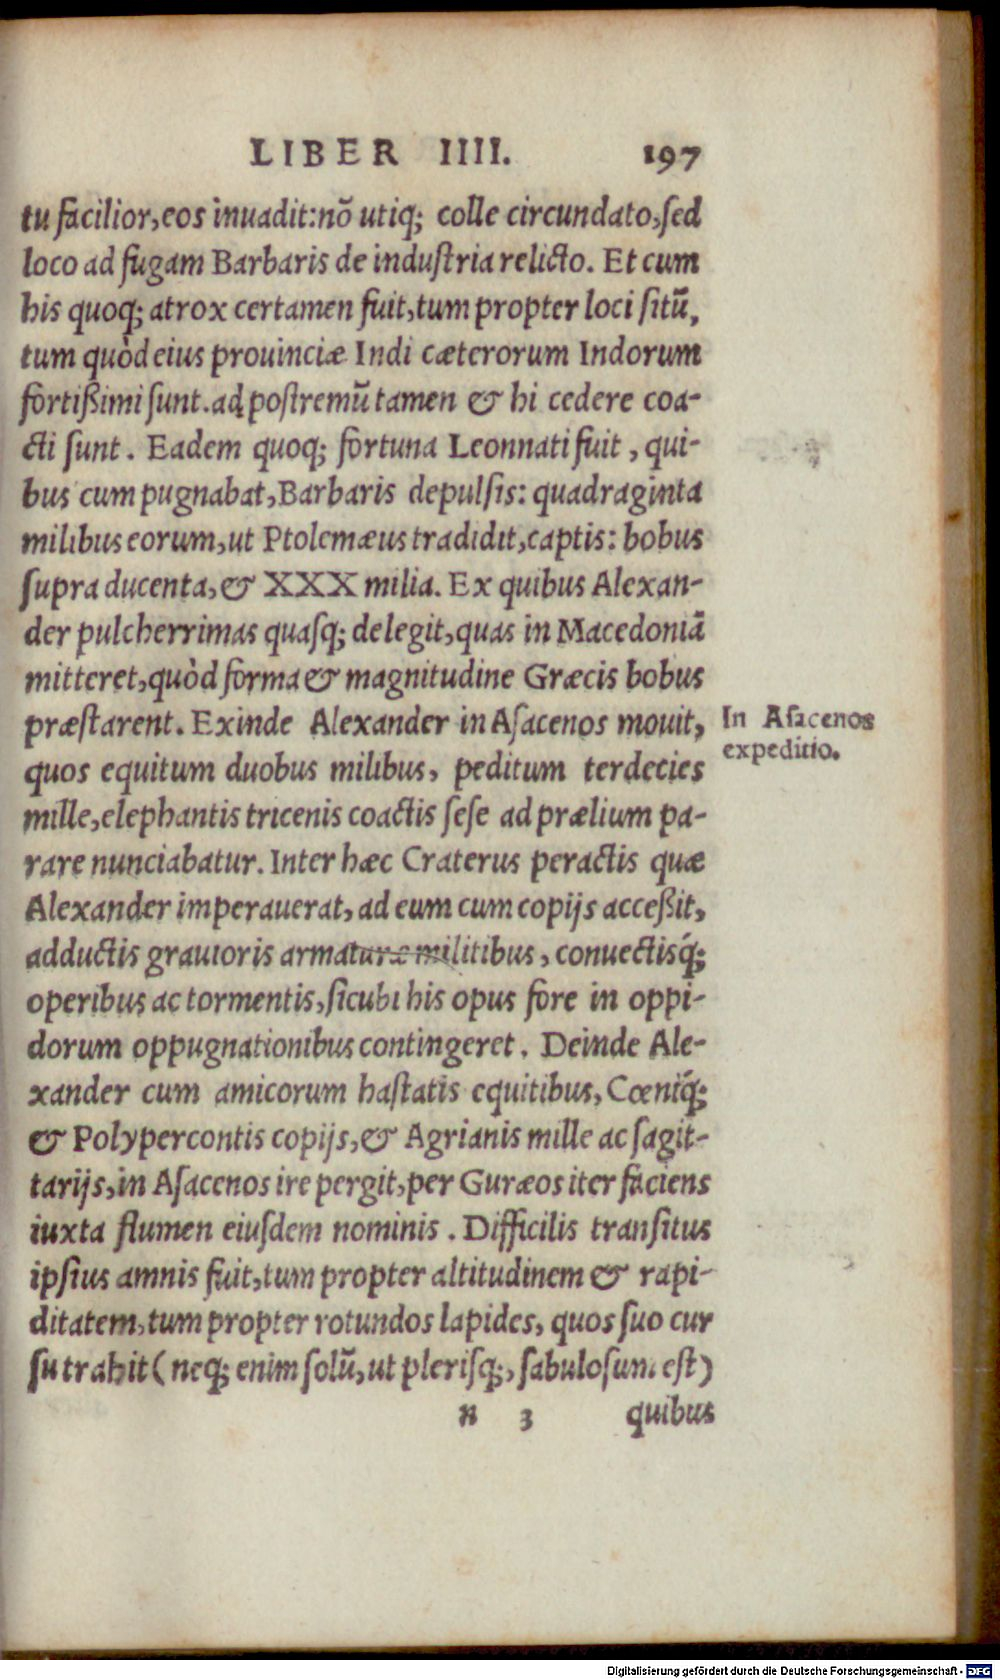 LIBER IIII. 197
tu facilior, eos inuadit: nõ utiq; colle circundato, sed
loco ad fugam Barbaris de industria relicto. Et cum
his quoq; atrox certamen fuit, tum propter loci sitũ,
tum quòd eius prouinciæ Indi cæterorum Indorum
fortißimi sunt. ad postremũ tamen & hi cedere coa-
cti sunt. Eadem quoq; fortuna Leonnati fuit, qui-
bus cum pugnabat, Barbaris depulsis: quadraginta
milibus eorum, ut Ptolemæus tradidit, captis: bobus
supra ducenta, & XXX milia. Ex quibus Alexan-
der pulcherrimas quasq; delegit, quas in Macedoniã
mitteret, quòd forma & magnitudine Græcis bobus
præstarent. Exinde Alexander in Asacenos mouit,
In Asacenos
expeditio.
quos equitum duobus milibus, peditum terdecies
mille, elephantis tricenis coactis sese ad prælium pa-
rare nunciabatur. Inter hæc Craterus peractis quæ
Alexander imperauerat, ad eum cum copijs acceßit,
adductis grauioris armaturæ militibus, conuectisq́;
operibus ac tormentis, sicubi his opus fore in oppi-
dorum oppugnationibus contingeret. Deinde Ale-
xander cum amicorum hastatis equitibus, Cœniq́;
& Polypercontis copijs, & Agrianis mille ac sagit-
tarijs, in Asacenos ire pergit, per Guræos iter faciens
iuxta flumen eiusdem nominis. Difficilis transitus
ipsius amnis fuit, tum propter altitudinem & rapi-
ditatem, tum propter rotundos lapides, quos suo cur
su trahit (neq; enim solũ, ut plerisq;, sabulosum est)
n 3 quibus
Digitalisierung gefördert durch die Deutsche Forschungsgemeinschaft - DFG